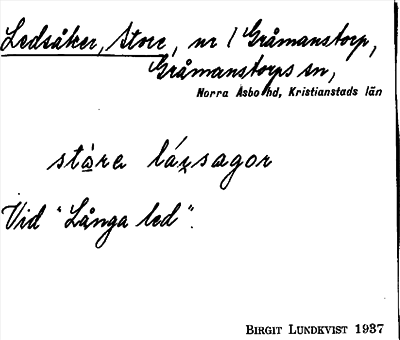 Ledsåker, Store, nr 1 Gråmanstorp,
Gråmanstorps sn,
Norra Åsbo hd, Kristianstads län
Vid "Långa led".
BIRGIT LUNDKVIST 1937